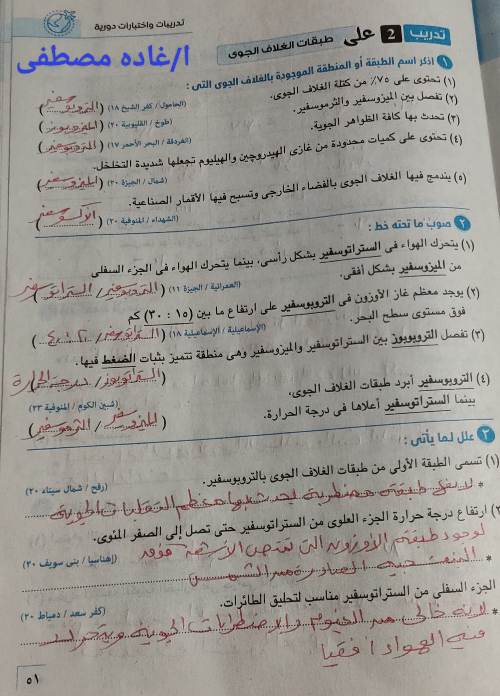 تدريبات واختبارات دورية
تدريب 2 على طبقات الغلاف الجوى
أ/غاده مصطفى
١ اذكر اسم الطبقة أو المنطقة الموجودة بالغلاف الجوى التى :
(١) تحتوى على ٧٥٪ من كتلة الغلاف الجوى.
(الحامول / كفر الشيخ ١٨) (التروبوسفير)
(٢) تفصل بين الميزوسفير والثرموسفير.
(طوخ / القليوبية ٢٠) (الميزوبوز)
(٣) تحدث بها كافة الظواهر الجوية.
(الغردقة / البحر الأحمر ١٧) (التروبوسفير)
(٤) تحتوى على كميات محدودة من غازى الهيدروچين والهيليوم تجعلها شديدة التخلخل.
(شمال / الجيزة ٢٠) (الميزوسفير)
(٥) يندمج فيها الغلاف الجوى بالفضاء الخارجى وتسبح فيها الأقمار الصناعية.
(الشهداء / المنوفية ٢٠) (الإكسوسفير)
٢ صوب ما تحته خط :
(١) يتحرك الهواء فى الستراتوسفير بشكل رأسى، بينما يتحرك الهواء فى الجزء السفلى
من الميزوسفير بشكل أفقى.
(العمرانية / الجيزة ١١) (التروبوسفير / الستراتوسفير)
(٢) يوجد معظم غاز الأوزون فى التروبوسفير على ارتفاع ما بين (١٥ : ٣٠) كم
فوق مستوى سطح البحر.
(الإسماعيلية / الإسماعيلية ١٨) (الستراتوسفير / ٢٠ : ٤٠)
(٣) تفصل التروبوبوز بين الستراتوسفير والميزوسفير وهى منطقة تتميز بثبات الضغط فيها.
(الستراتوبوز / درجة الحرارة)
(٤) التروبوسفير أبرد طبقات الغلاف الجوى،
بينما الستراتوسفير أعلاها فى درجة الحرارة.
(شبين الكوم / المنوفية ٢٣) (الميزوسفير / الثرموسفير)
٣ علل لما يأتى :
(١) تسمى الطبقة الأولى من طبقات الغلاف الجوى بالتروبوسفير.
(رفح / شمال سيناء ٢٠)
* لانها طبقة مضطربة يحدث بها معظم التقلبات الجوية
ارتفاع درجة حرارة الجزء العلوى من الستراتوسفير حتى تصل إلى الصفر المئوى.
(إهناسيا / بنى سويف ٢٠)
لوجود طبقة الأوزون التى تمتص الأشعة فوق
* البنفسجية الصادرة من الشمس
الجزء السفلى من الستراتوسفير مناسب لتحليق الطائرات.
(كفر سعد / دمياط ٢٠)
* لانه خالى من الغيوم والاضطرابات الجوية ويتحرك
فيه الهواء افقيا
٥١